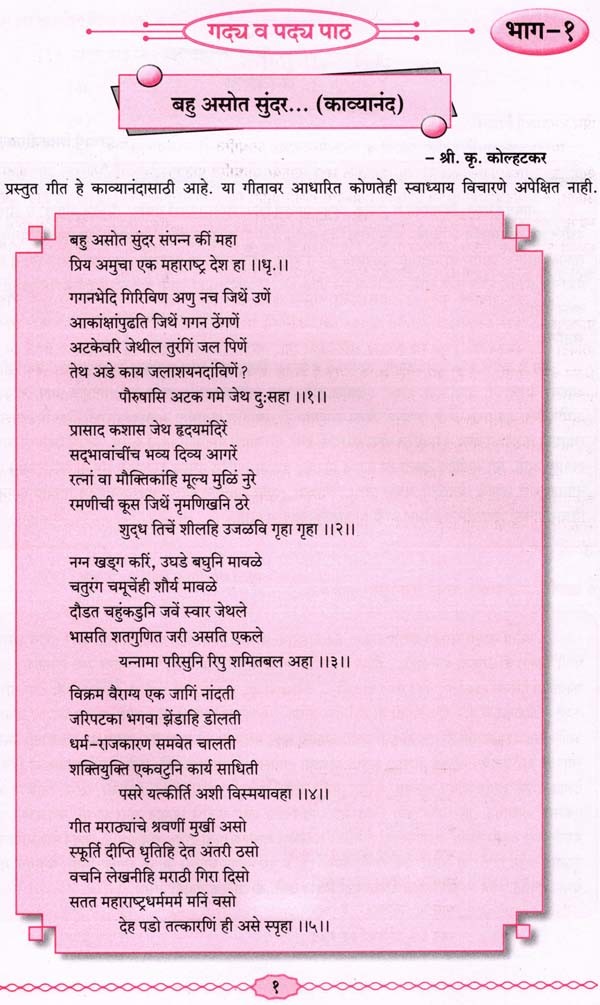 गद्य व पद्य पाठ
भाग-१
बहु असोत सुंदर... (काव्यानंद)
– श्री. कृ. कोल्हटकर
प्रस्तुत गीत हे काव्यानंदासाठी आहे. या गीतावर आधारित कोणतेही स्वाध्याय विचारणे अपेक्षित नाही.
बहु असोत सुंदर संपन्न कीं महा
प्रिय अमुचा एक महाराष्ट्र देश हा ।।धृ.।।
गगनभेदि गिरिविण अणु नच जिथें उणें
आकांक्षांपुढति जिथें गगन ठेंगणें
अटकेवरि जेथील तुरंगिं जल पिणें
तेथ अडे काय जलाशयनदांविणें?
पौरुषासि अटक गमे जेथ दु:सहा ।।१।।
प्रासाद कशास जेथ हृदयमंदिरें
सद्‌भावांचींच भव्य दिव्य आगरें
रत्नां वा मौक्तिकांहि मूल्य मुळिं नुरे
रमणीची कूस जिथें नृमणिखनि ठरे
शुद्ध तिचें शीलहि उजळवि गृहा गृहा ।।२।।
नग्न खड्ग करिं, उघडे बघुनि मावळे
चतुरंग चमूचेंही शौर्य मावळे
दौडत चहुंकडुनि जवें स्वार जेथले
भासति शतगुणित जरी असति एकले
यन्नामा परिसुनि रिपु शमितबल अहा ।।३।।
विक्रम वैराग्य एक जागिं नांदती
जरिपटका भगवा झेंडाहि डोलती
धर्म-राजकारण समवेत चालती
शक्तियुक्ति एकवटुनि कार्य साधिती
पसरे यत्कीर्ति अशी विस्मयावहा ।।४।।
गीत मराठ्यांचे श्रवणीं मुखीं असो
स्फूर्ति दीप्ति धृतिहि देत अंतरी ठसो
वचनि लेखनीहि मराठी गिरा दिसो
सतत महाराष्ट्रधर्ममर्म मनिं वसो
देह पडो तत्कारणिं ही असे स्पृहा ।।५।।
१